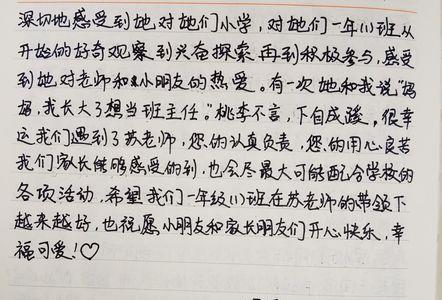 深切地感受到她对她们小学，对她们一年(1)班从
开始的好奇观察到兴奋探索再到积极参与，感受
到她对老师和小朋友的热爱。有一次她和我说“妈
妈，我长大了想当班主任。”桃李不言，下自成蹊。很幸
运我们遇到了苏老师，您的认真负责，您的用心良苦
我们家长能够感受的到，也会尽最大可能配合学校的
各项活动，希望我们一年级(1)班在苏老师的带领下
越来越好，也祝愿小朋友和家长朋友们开心快乐，幸
福可爱！♡